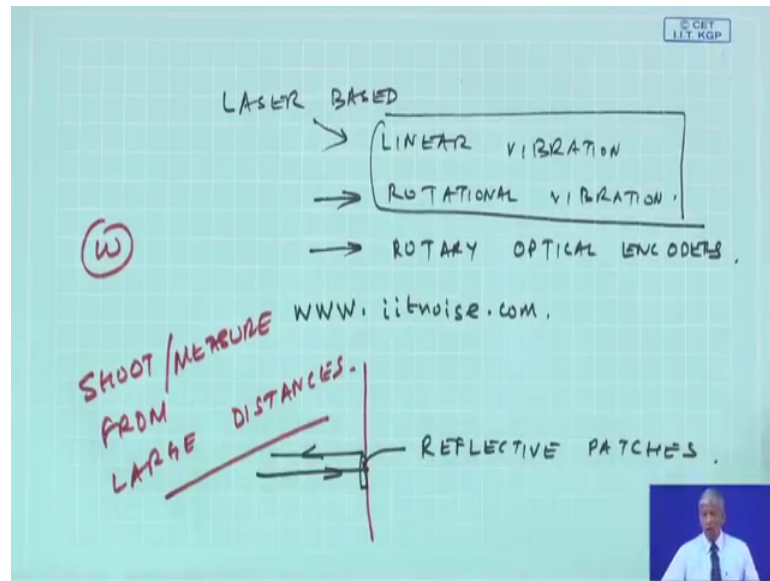 © CET
I.I.T. KGP
LASER BASED
LINEAR VIBRATION
ROTATIONAL VIBRATION.
ROTARY OPTICAL ENCODERS.
W
www.iitnoise.com.
SHOOT/MEASURE
FROM
LARGE DISTANCES.
REFLECTIVE PATCHES.